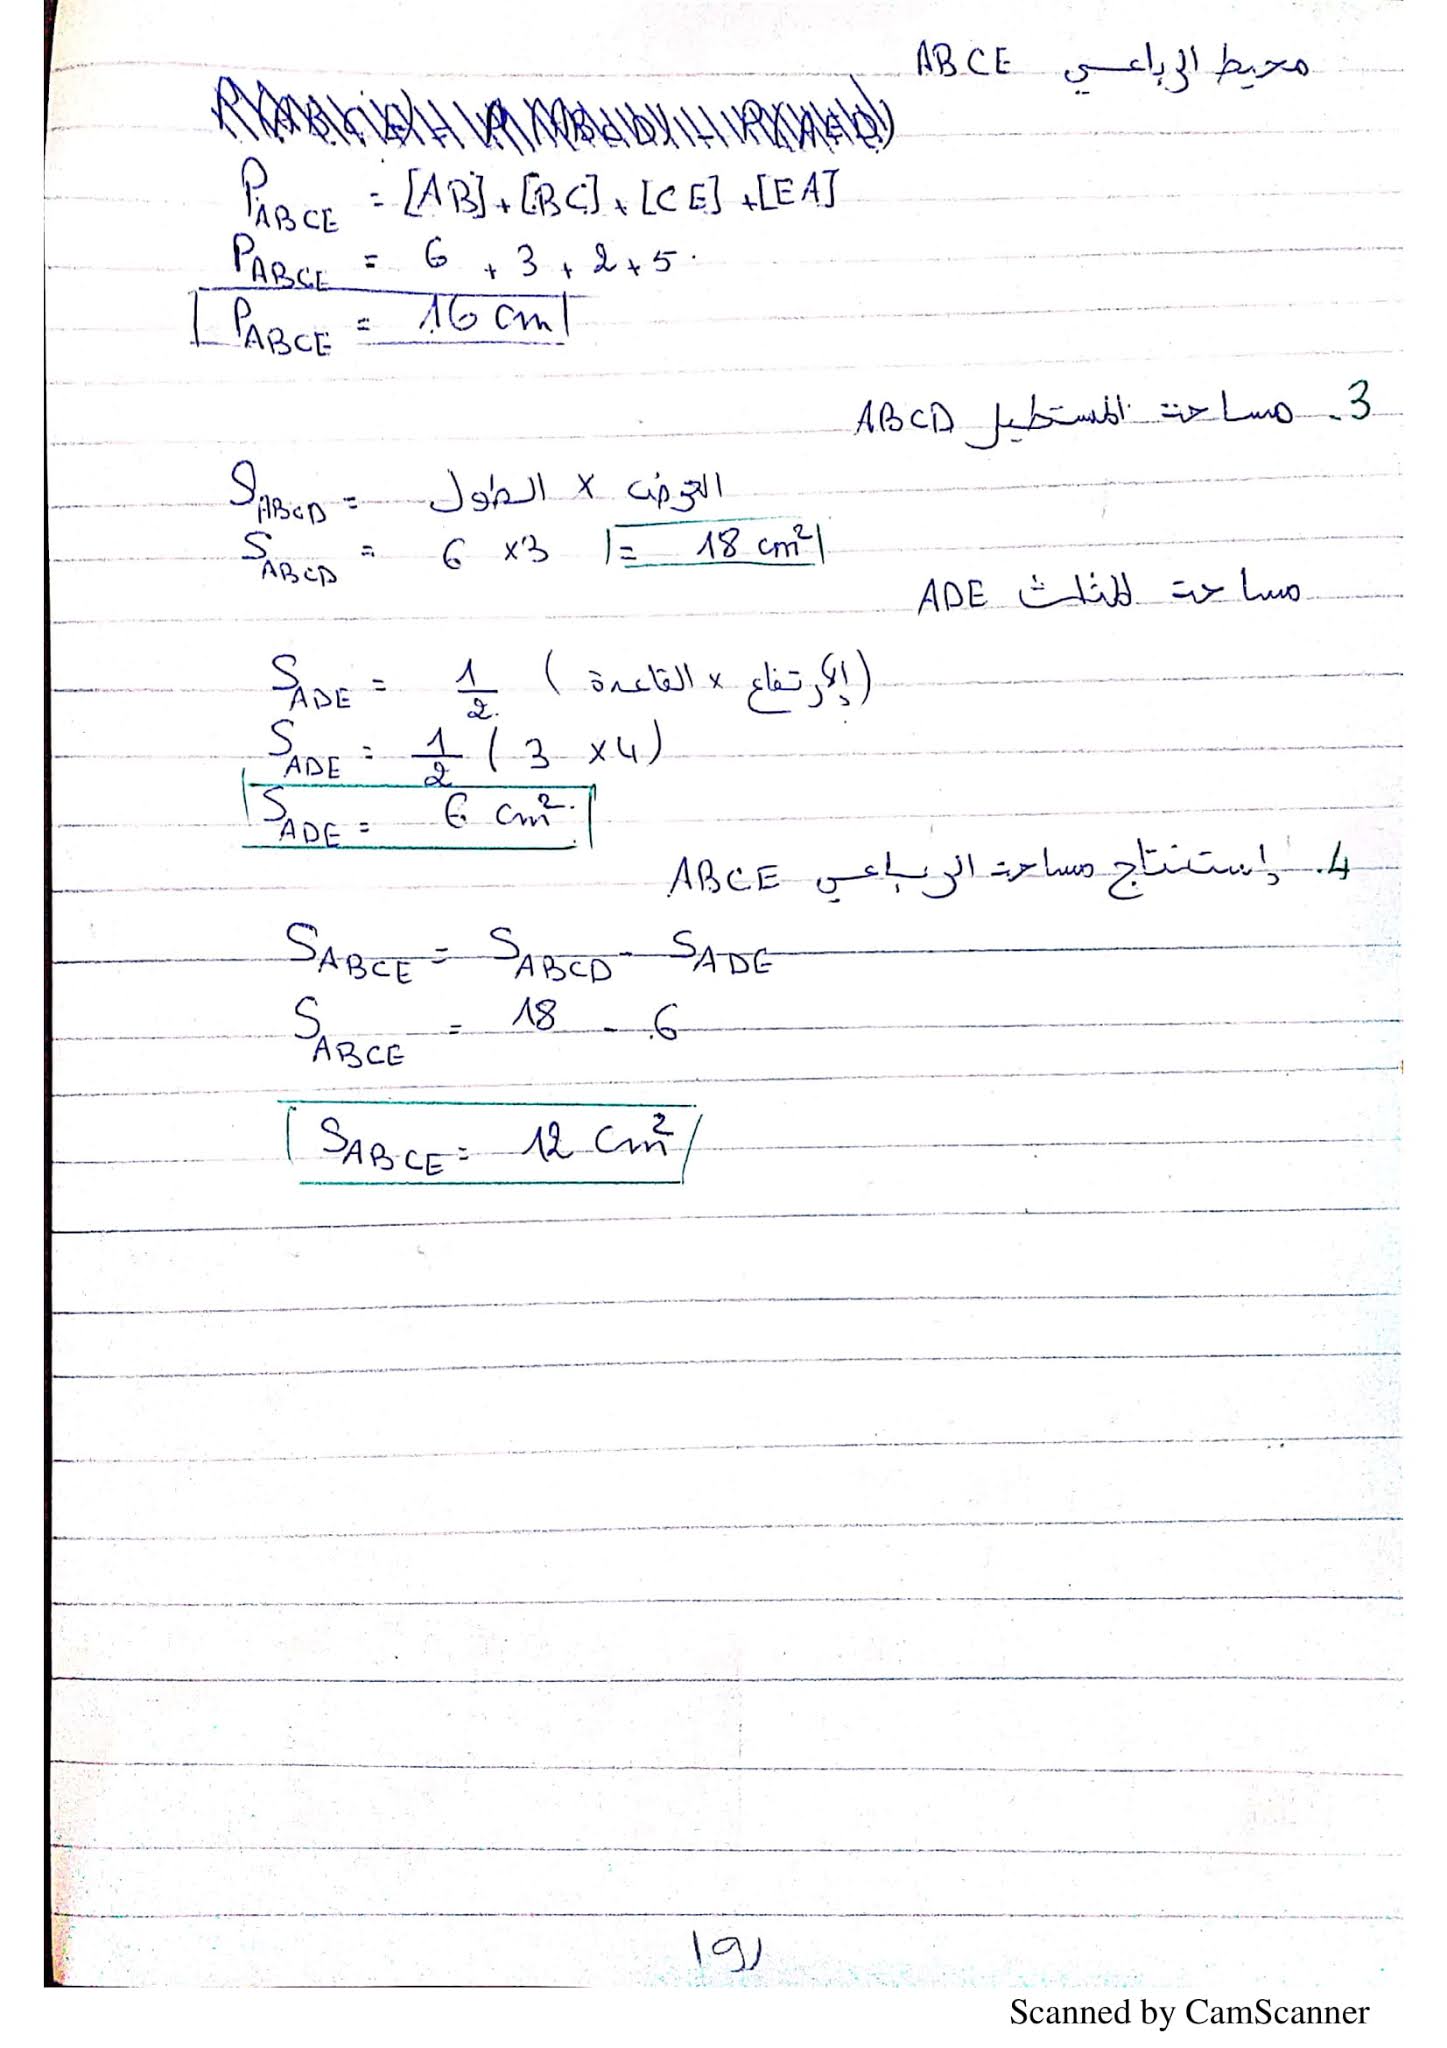 محيط الرباعي ABCE
P ABCE = [AB] + [BC] + [CE] + [EA]
P ABCE = 6 + 3 + 2 + 5.
P ABCE = 16 cm
3. مساحة المستطيل ABCD
S ABCD = الطول × العرض
S ABCD = 6 × 3 = 18 cm²
مساحة المثلث ADE
S ADE = 1/2 (القاعدة × الإرتفاع)
S ADE = 1/2 (3 × 4)
S ADE = 6 cm²
4. إستنتاج مساحة الرباعي ABCE
S ABCE = S ABCD - S ADE
S ABCE = 18 - 6
S ABCE = 12 cm²
Scanned by CamScanner